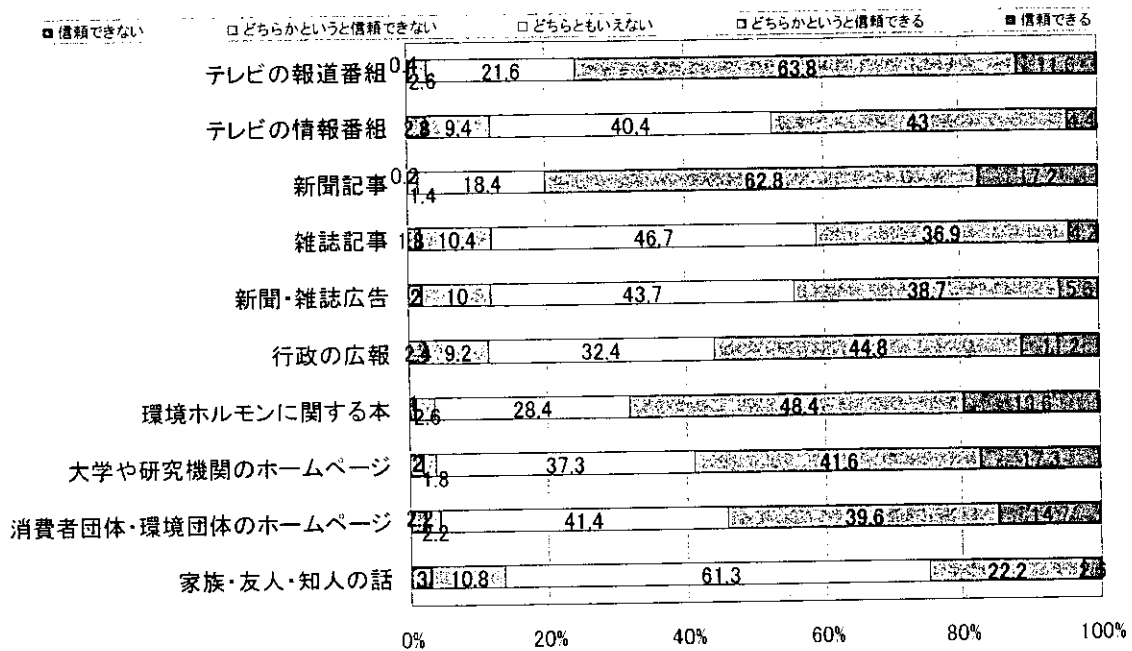 信頼できない どちらかというと信頼できない どちらともいえない どちらかというと信頼できる 信頼できる
テレビの報道番組 0.4 2.6 21.6 63.8 11.6
テレビの情報番組 2.8 9.4 40.4 43 4.4
新聞記事 0.2 1.4 18.4 62.8 17.2
雑誌記事 1.8 10.4 46.7 36.9 4.2
新聞・雑誌広告 2 10 43.7 38.7 5.6
行政の広報 2.4 9.2 32.4 44.8 11.2
環境ホルモンに関する本 1 2.6 28.4 48.4 19.6
大学や研究機関のホームページ 2 1.8 37.3 41.6 17.3
消費者団体・環境団体のホームページ 2.2 2.2 41.4 39.6 14.7
家族・友人・知人の話 3 10.8 61.3 22.2 2.6
0% 20% 40% 60% 80% 100%